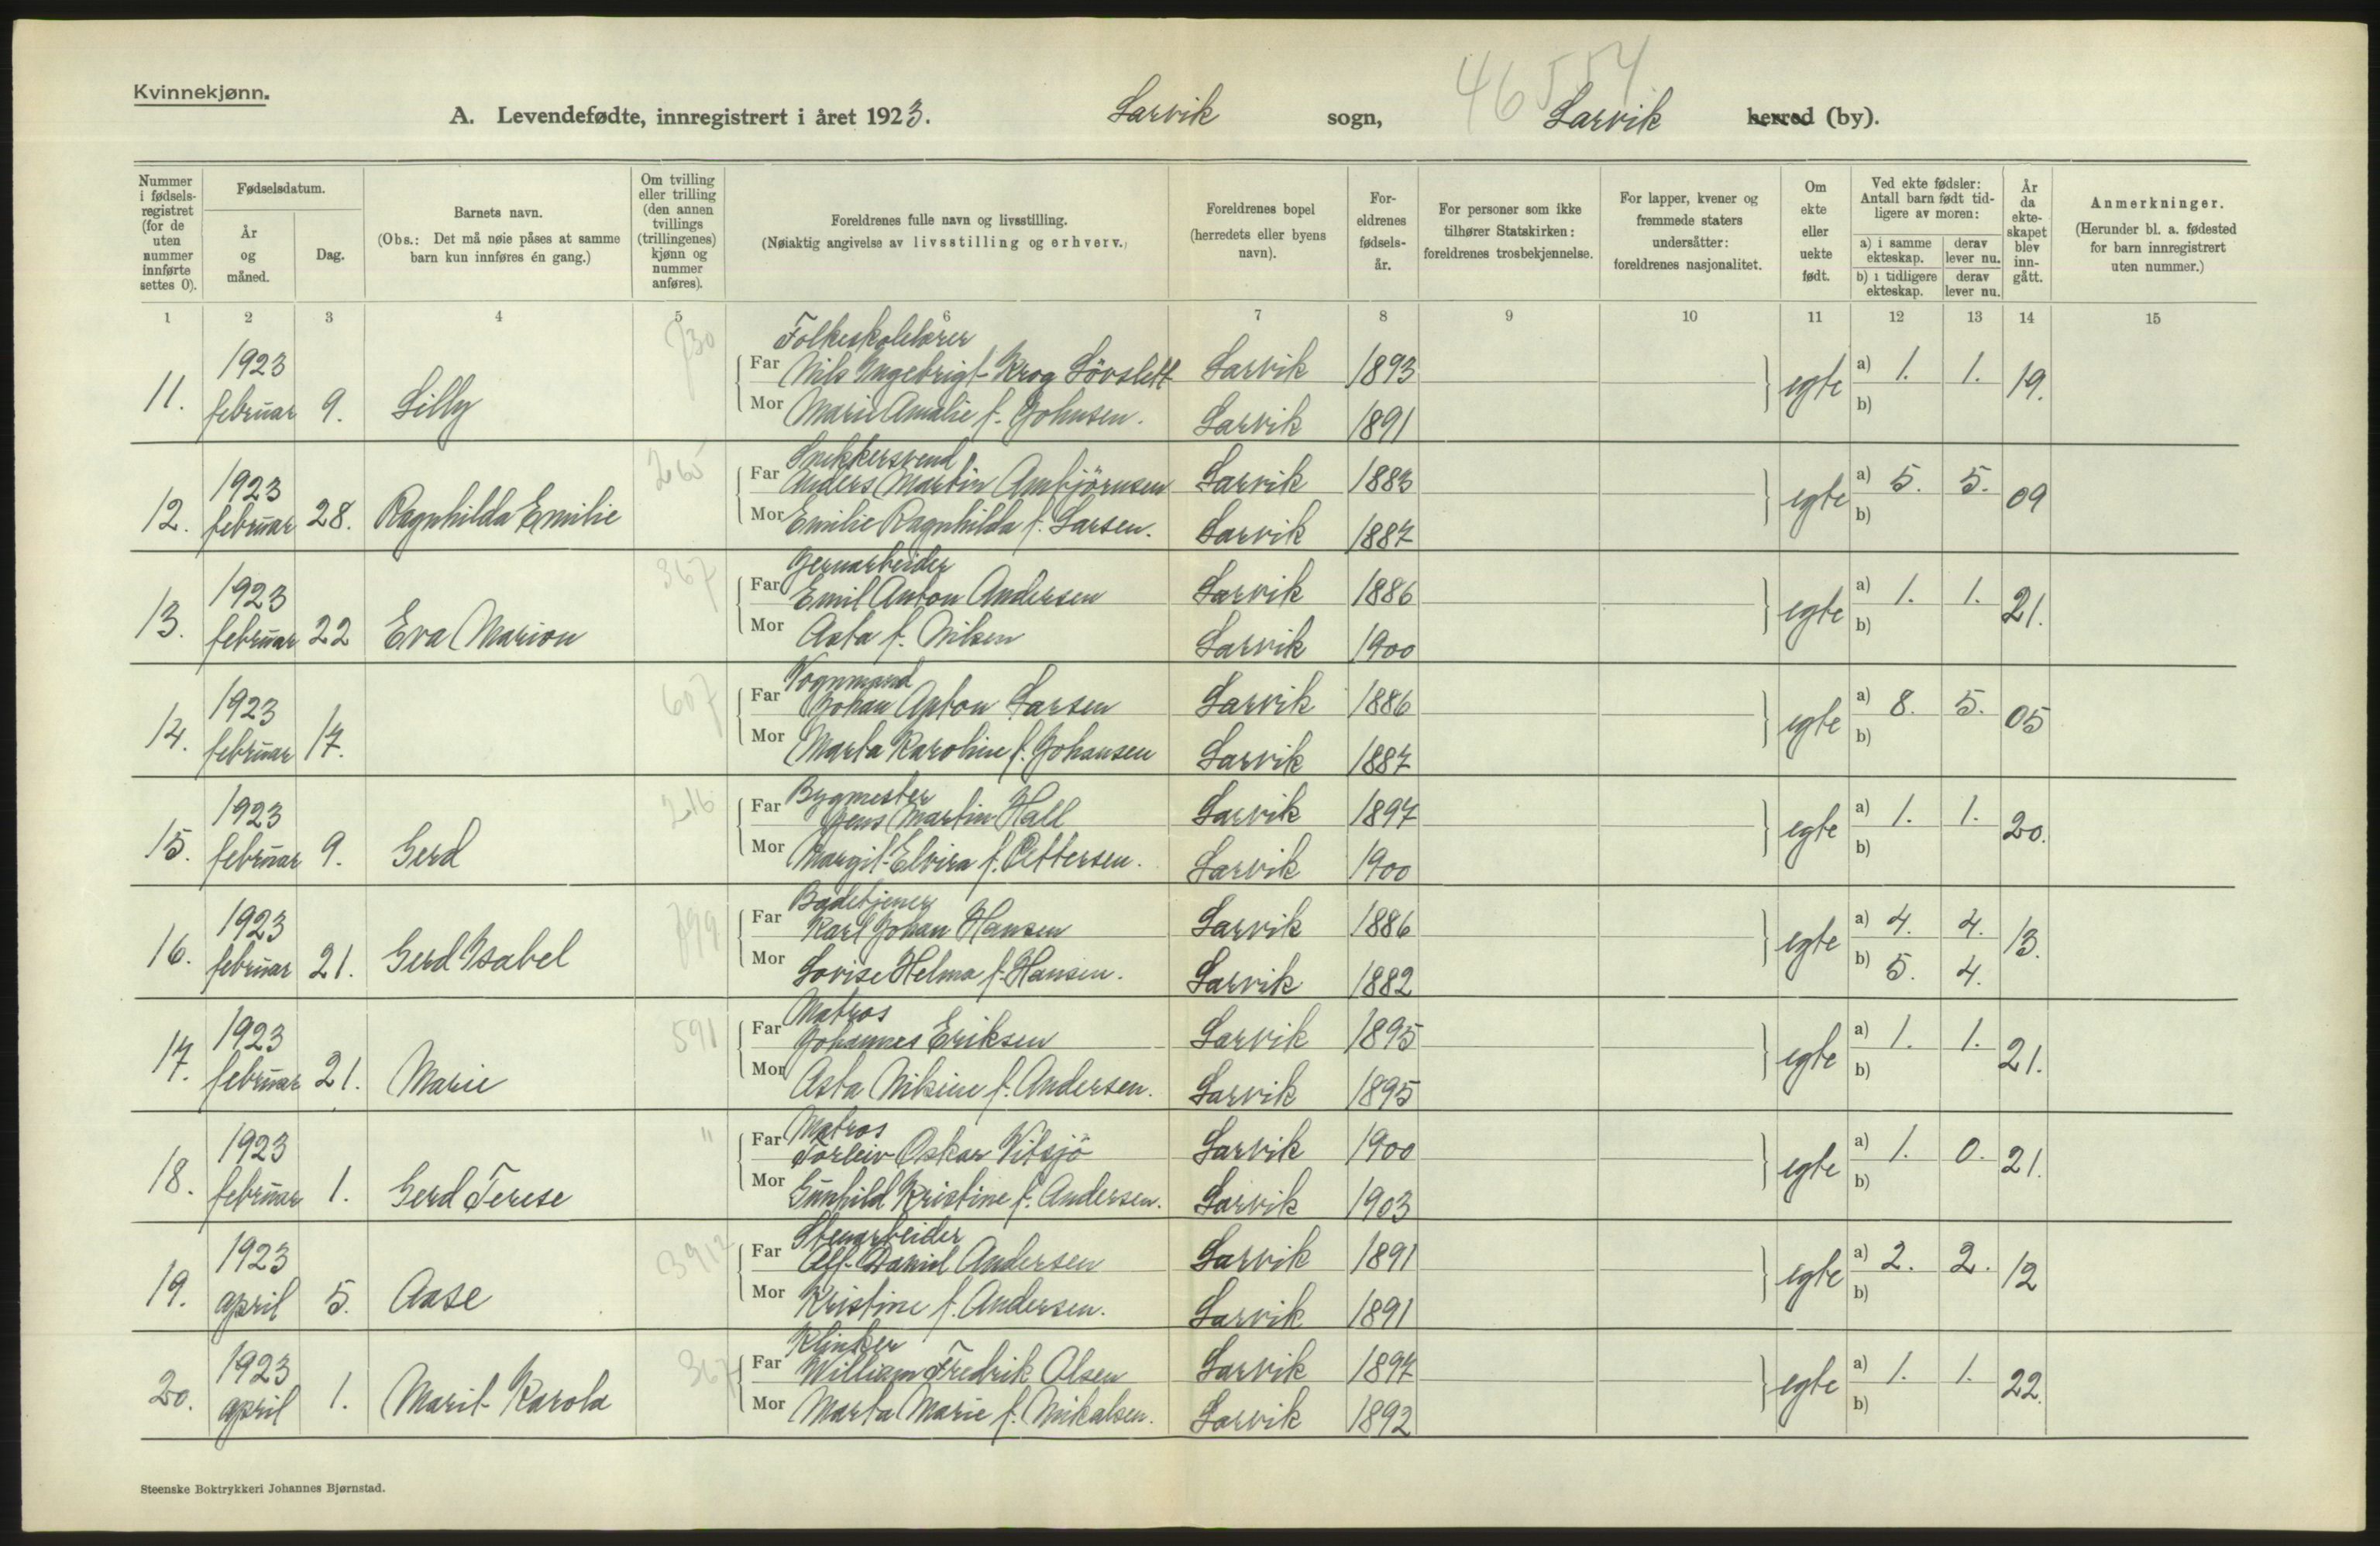 Kvinnekjønn.
46554
A. Levendefødte, innregistrert i året 1923. Larvik sogn, Larvik herred (by).
Nummer i fødsels-registret (for de uten nummer innførte settes 0).
Fødselsdatum.
År og måned.
Dag.
Barnets navn.
(Obs.: Det må nøie påses at samme barn kun innføres én gang.)
Om tvilling eller trilling (den annen tvillings (trillingenes) kjønn og nummer anføres).
Foreldrenes fulle navn og livsstilling.
(Nøiaktig angivelse av livsstilling og erhverv.)
Foreldrenes bopel (herredets eller byens navn).
For-eldrenes fødsels-år.
For personer som ikke tilhører Statskirken: foreldrenes trosbekjennelse.
For lapper, kvener og fremmede staters undersåtter: foreldrenes nasjonalitet.
Om ekte eller uekte født.
Ved ekte fødsler: Antall barn født tid-ligere av moren:
a) i samme ekteskap. derav lever nu.
b) i tidligere ekteskap. derav lever nu.
År da ekte-skapet blev inn-gått.
Anmerkninger.
(Herunder bl. a. fødested for barn innregistrert uten nummer.)
1 2 3 4 5 6 7 8 9 10 11 12 13 14 15
730 Folkeskolelærer
1923 Far Nils Ingebrigt Krog Lövslett Larvik 1893 a) 1. 1.
11. februar 9. Lilly Mor Marie Amalie f. Johnsen. Larvik 1891 egte b) 19.
265 Snekkersvend
1923 Far Anders Martin Ambjörnsen Larvik 1883 a) 5. 5.
12. februar 28. Ragnhilda Emilie Mor Emilie Ragnhilda f. Larsen. Larvik 1887 egte b) 09
367 Jernarbeider
1923 Far Emil Anton Andersen Larvik 1886 a) 1. 1.
13. februar 22 Eva Marion Mor Asta f. Nilsen Larvik 1900 egte b) 21.
607 Vognmand
1923 Far Johan Anton Larsen Larvik 1886 a) 8. 5.
14. februar 17. Mor Marta Karoline f. Johansen Larvik 1887 egte b) 05
216 Bygmester
1923 Far Jens Martin Hall Larvik 1897 a) 1. 1.
15. februar 9. Gerd Mor Margit Elvira f. Pettersen. Larvik 1900 egte b) 20.
899 Badetjener
1923 Far Karl Johan Hansen Larvik 1886 a) 4. 4.
16. februar 21. Gerd Isabel Mor Lovise Helma f. Hansen. Larvik 1882 egte b) 5. 4. 13.
591 Matros
1923 Far Johannes Eriksen Larvik 1895 a) 1. 1.
17. februar 21. Marie Mor Asta Nikine f. Andersen. Larvik 1895 egte b) 21.
" Matros
1923 Far Torleiv Oskar Vitsjö Larvik 1900 a) 1. 0.
18. februar 1. Gerd Terese Mor Gunhild Kristine f. Andersen. Larvik 1903 egte b) 21.
Stenarbeider
1923 Far Alf Daniel Andersen Larvik 1891 a) 2. 2.
19. april 5. Aase Mor Kristine f. Andersen. Larvik 1891 egte b) 12
367 Klinker
1923 Far William Fredrik Olsen Larvik 1897 a) 1. 1.
20. april 1. Marit Karola Mor Marta Marie f. Mikalsen. Larvik 1892 egte b) 22.
Steenske Boktrykkeri Johannes Bjørnstad.